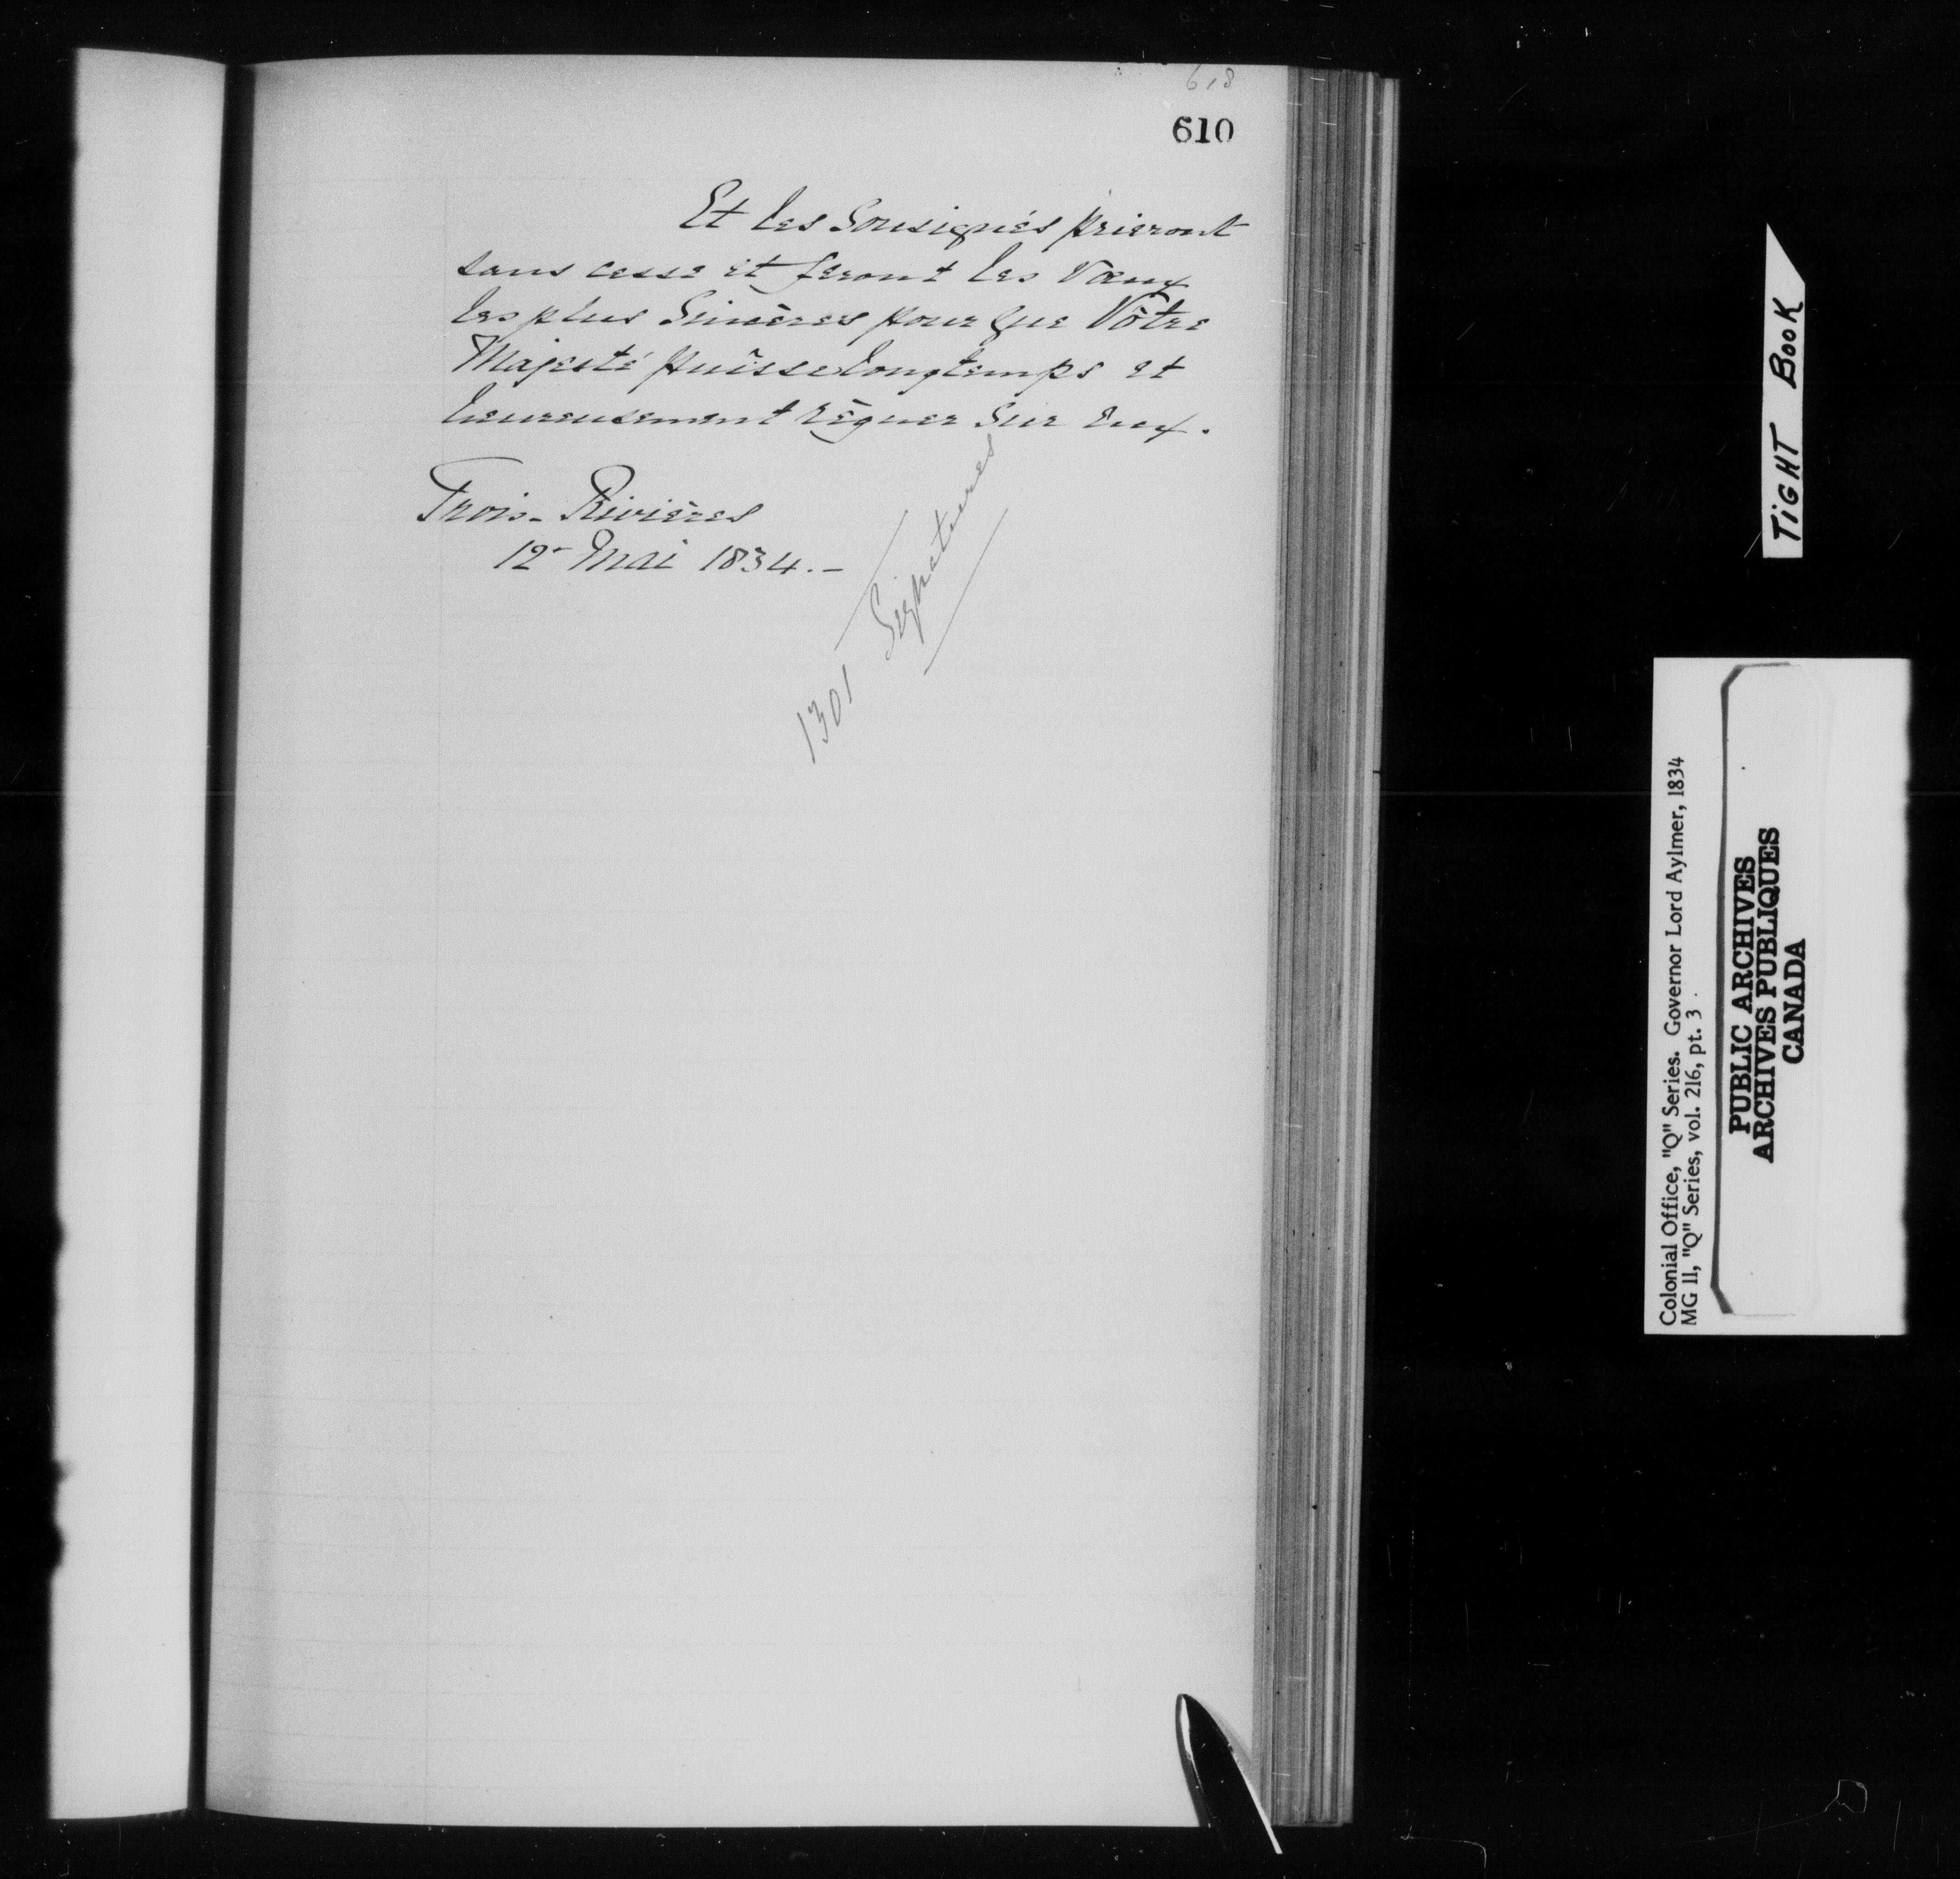 618
610
Et les Sousignés prieront
sans cesse et feront les Vœux
les plus Sincères pour que Vôtre
Majesté puîsse longtemps et
heureusement règner Sur Eux.
Trois-Rivières
12 Mai 1834.-
1301 Signatures
TIGHT BOOK
Colonial Office, "Q" Series. Governor Lord Aylmer, 1834
MG 11, "Q" Series, vol. 216, pt. 3
PUBLIC ARCHIVES
ARCHIVES PUBLIQUES
CANADA